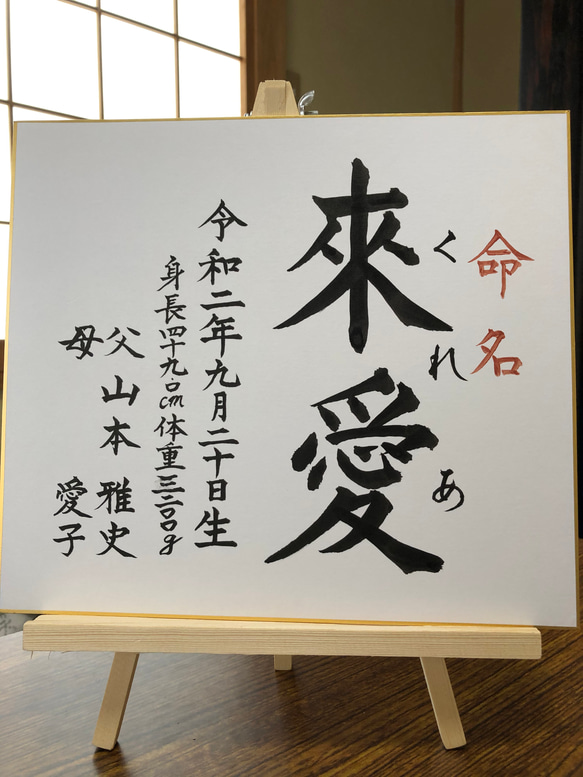 命名
くれあ
來愛
令和二年九月二十日生
身長四十九.〇cm体重三二〇〇g
父 山本 雅史
母 愛子